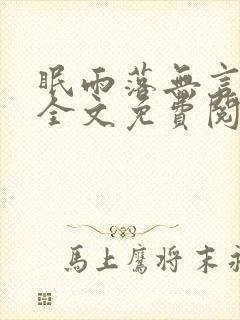 眠雨落無言
全文免費閱
馬上鷹將末